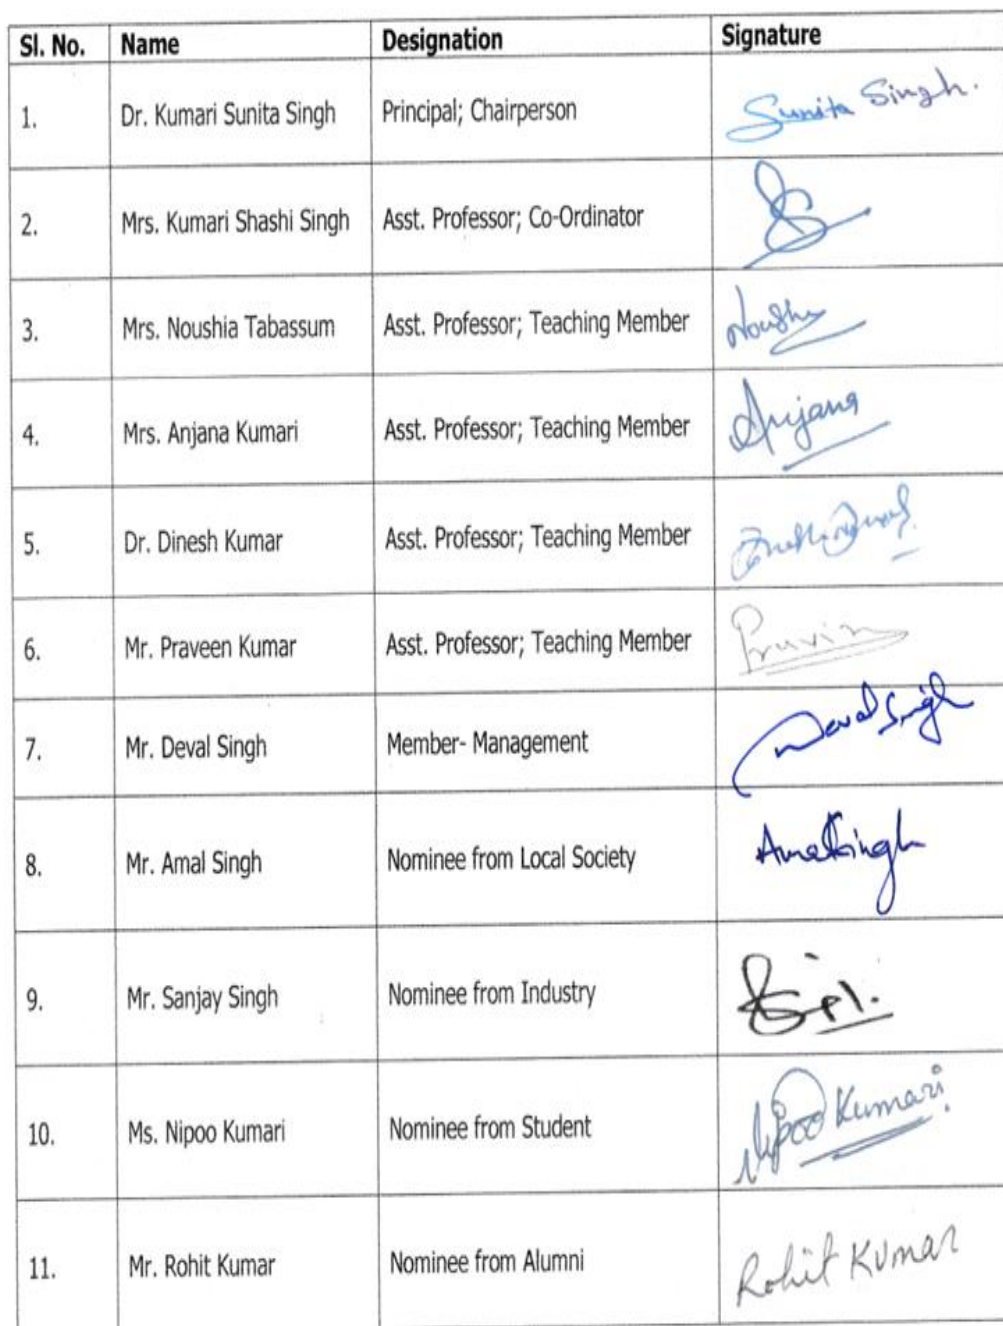 Sl. No. Name Designation Signature
1. Dr. Kumari Sunita Singh Principal; Chairperson Sunita Singh.
2. Mrs. Kumari Shashi Singh Asst. Professor; Co-Ordinator
3. Mrs. Noushia Tabassum Asst. Professor; Teaching Member
4. Mrs. Anjana Kumari Asst. Professor; Teaching Member Anjana
5. Dr. Dinesh Kumar Asst. Professor; Teaching Member
6. Mr. Praveen Kumar Asst. Professor; Teaching Member Pruvin
7. Mr. Deval Singh Member- Management Deval Singh
8. Mr. Amal Singh Nominee from Local Society Amal Singh
9. Mr. Sanjay Singh Nominee from Industry
10. Ms. Nipoo Kumari Nominee from Student Nipoo Kumari
11. Mr. Rohit Kumar Nominee from Alumni Rohit Kumar